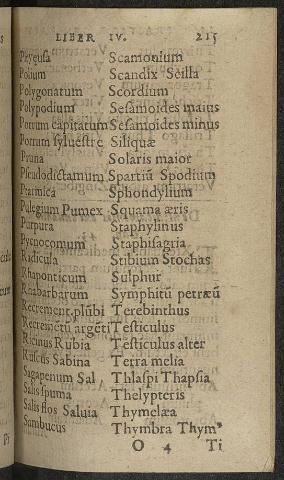 LIBER IV. 215
Pityusa
Polium
Polygonatum
Polypodium
Porrum capitatum
Porrum sylvestre
Pruna
Pseudodictamum
Ptarmica
Pulegium Pumex
Purpura
Pycnocomum
Radicula
Rhaponticum
Rhabarbarum
Recrement. plūbi
Recremētū argēti
Ricinus Rubia
Ruscus Sabina
Sagapenum Sal
Salis spuma
Salis flos Saluia
Sambucus
Scamonium
Scandix Scilla
Scordium
Sesamoides maius
Sesamoides minus
Siliquæ
Solaris maior
Spartiū Spodium
Sphondylium
Squama æris
Staphylinus
Staphisagria
Stibium Stœchas
Sulphur
Symphitū petræū
Terebinthus
Testiculus
Testiculus alter
Terra melia
Thlaspi Thapsia
Thelypteris
Thymelæa
Thymbra Thym⁹
O 4 Ti